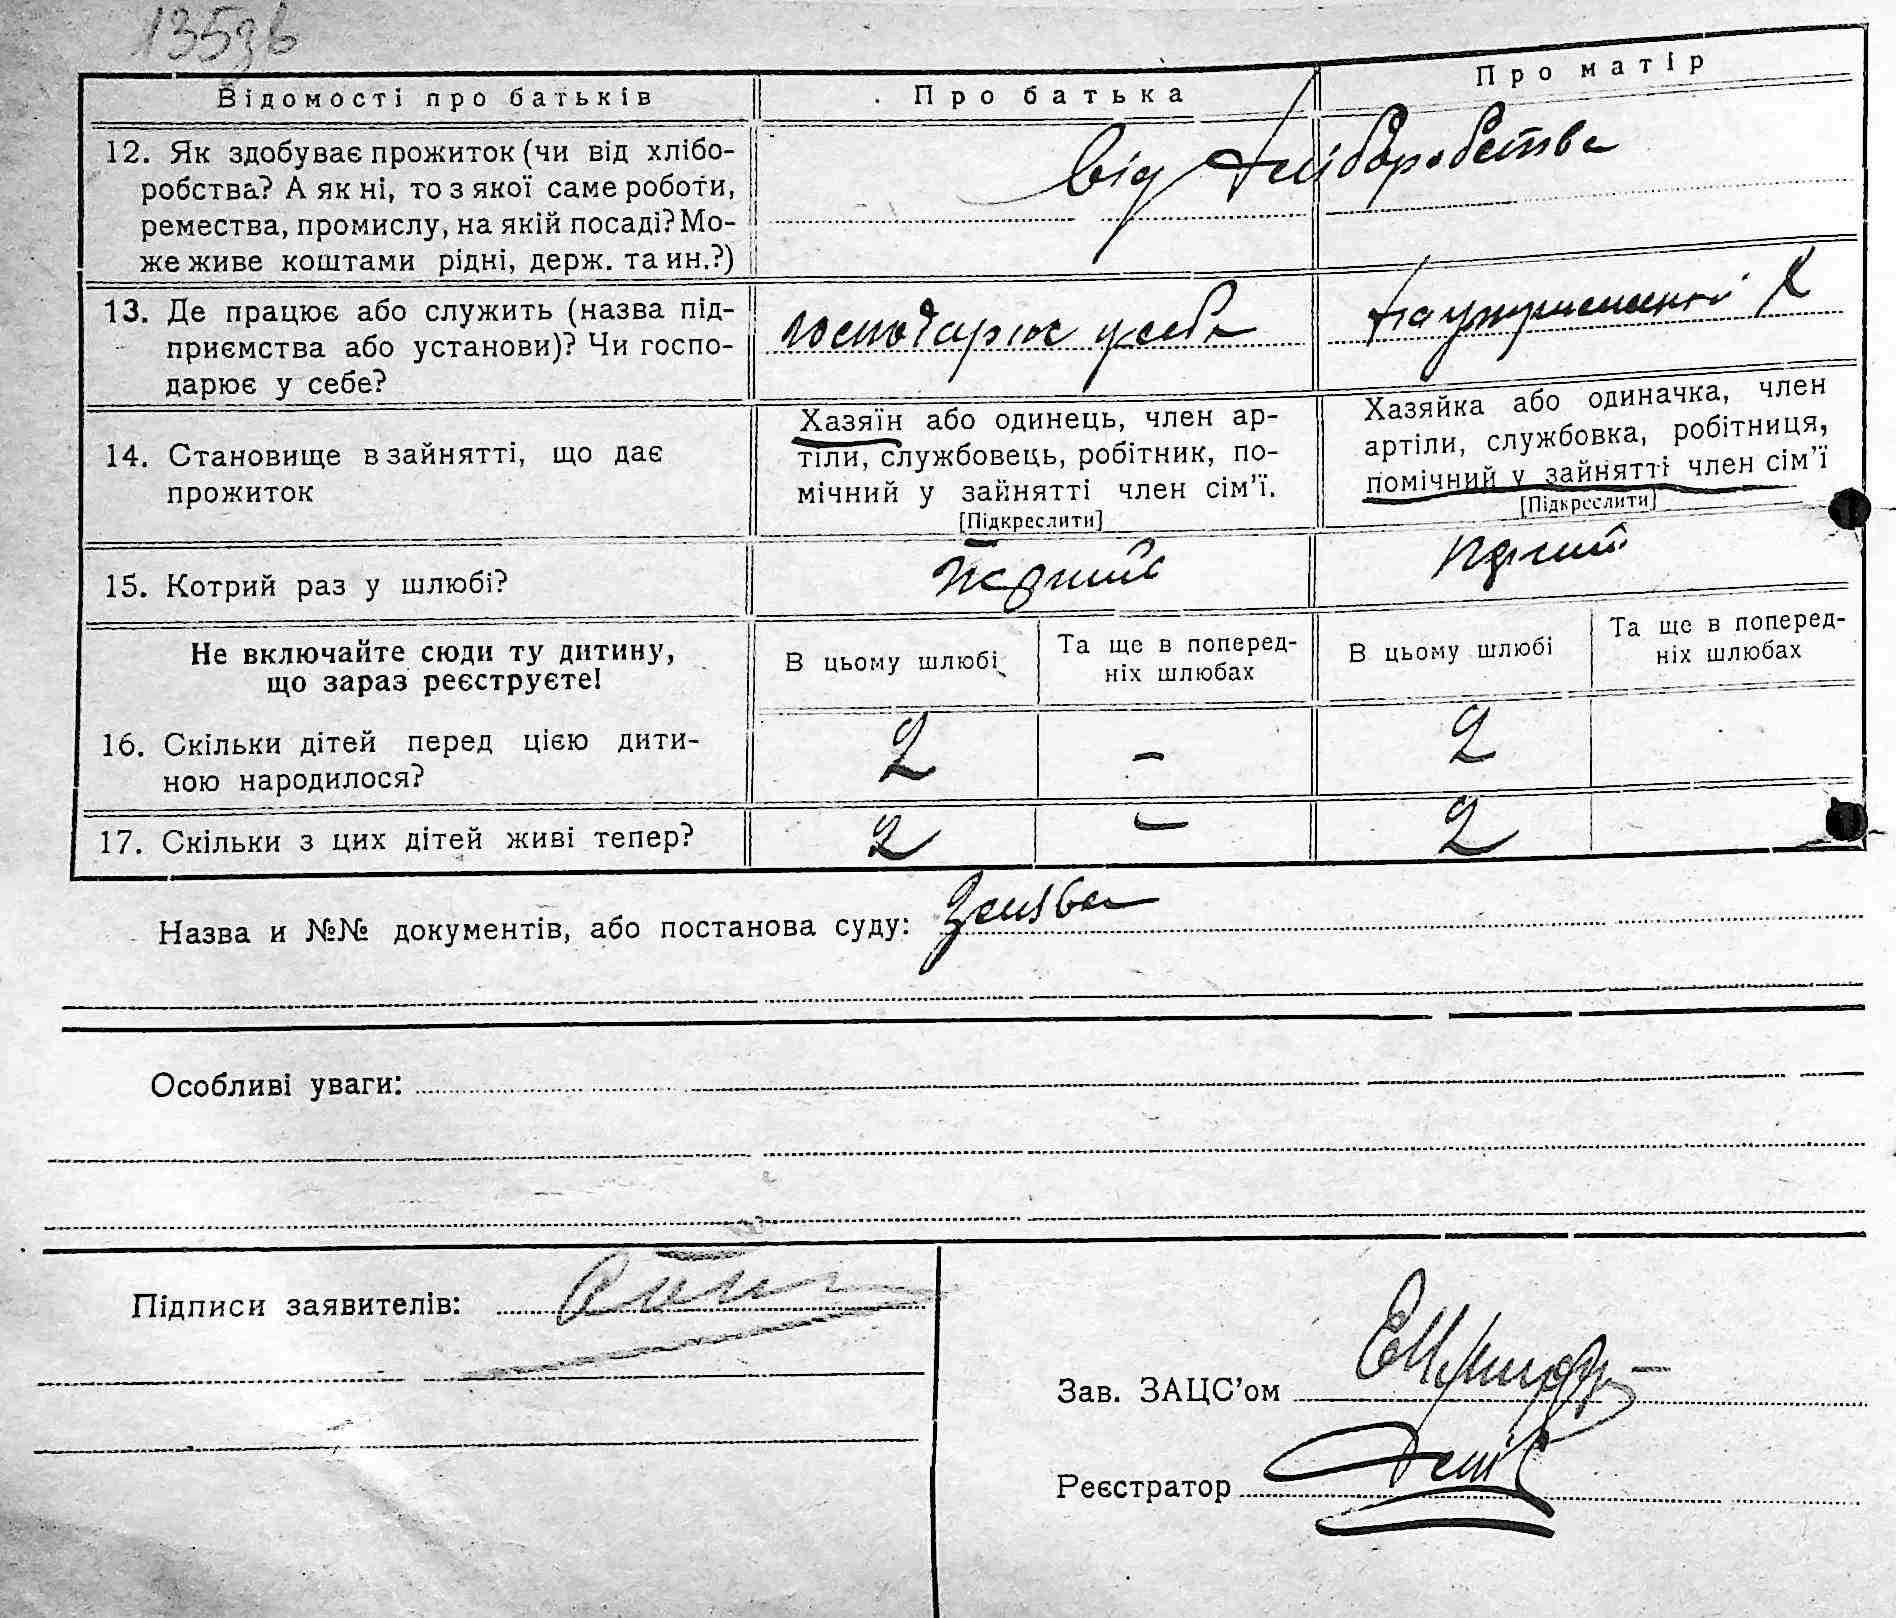 135зв
Відомості про батьків
Про батька
Про матір
12. Як здобуває прожиток (чи від хлібо-
робства? А як ні, то з якої саме роботи,
ремества, промислу, на якій посаді? Мо-
же живе коштами рідні, держ. та ин.?)
від хліборобства
13. Де працює або служить (назва під-
приємства або установи)? Чи госпо-
дарює у себе?
господарює у себе
14. Становище в зайнятті, що дає
прожиток
Хазяїн або одинець, член ар-
тіли, службовець, робітник, по-
мічний у зайнятті член сім’ї.
[Підкреслити]
Хазяйка або одиначка, член
артіли, службовка, робітниця,
помічний у зайнятті член сім’ї
[Підкреслити]
15. Котрий раз у шлюбі?
Перший
Перший
Не включайте сюди ту дитину,
що зараз реєструєте!
В цьому шлюбі
Та ще в поперед-
ніх шлюбах
В цьому шлюбі
Та ще в поперед-
ніх шлюбах
16. Скільки дітей перед цією дити-
ною народилося?
2
-
2
17. Скільки з цих дітей живі тепер?
2
-
2
Назва и №№ документів, або постанова суду: Заява
Особливі уваги:
Підписи заявителів:
Зав. ЗАЦС’ом
Реєстратор